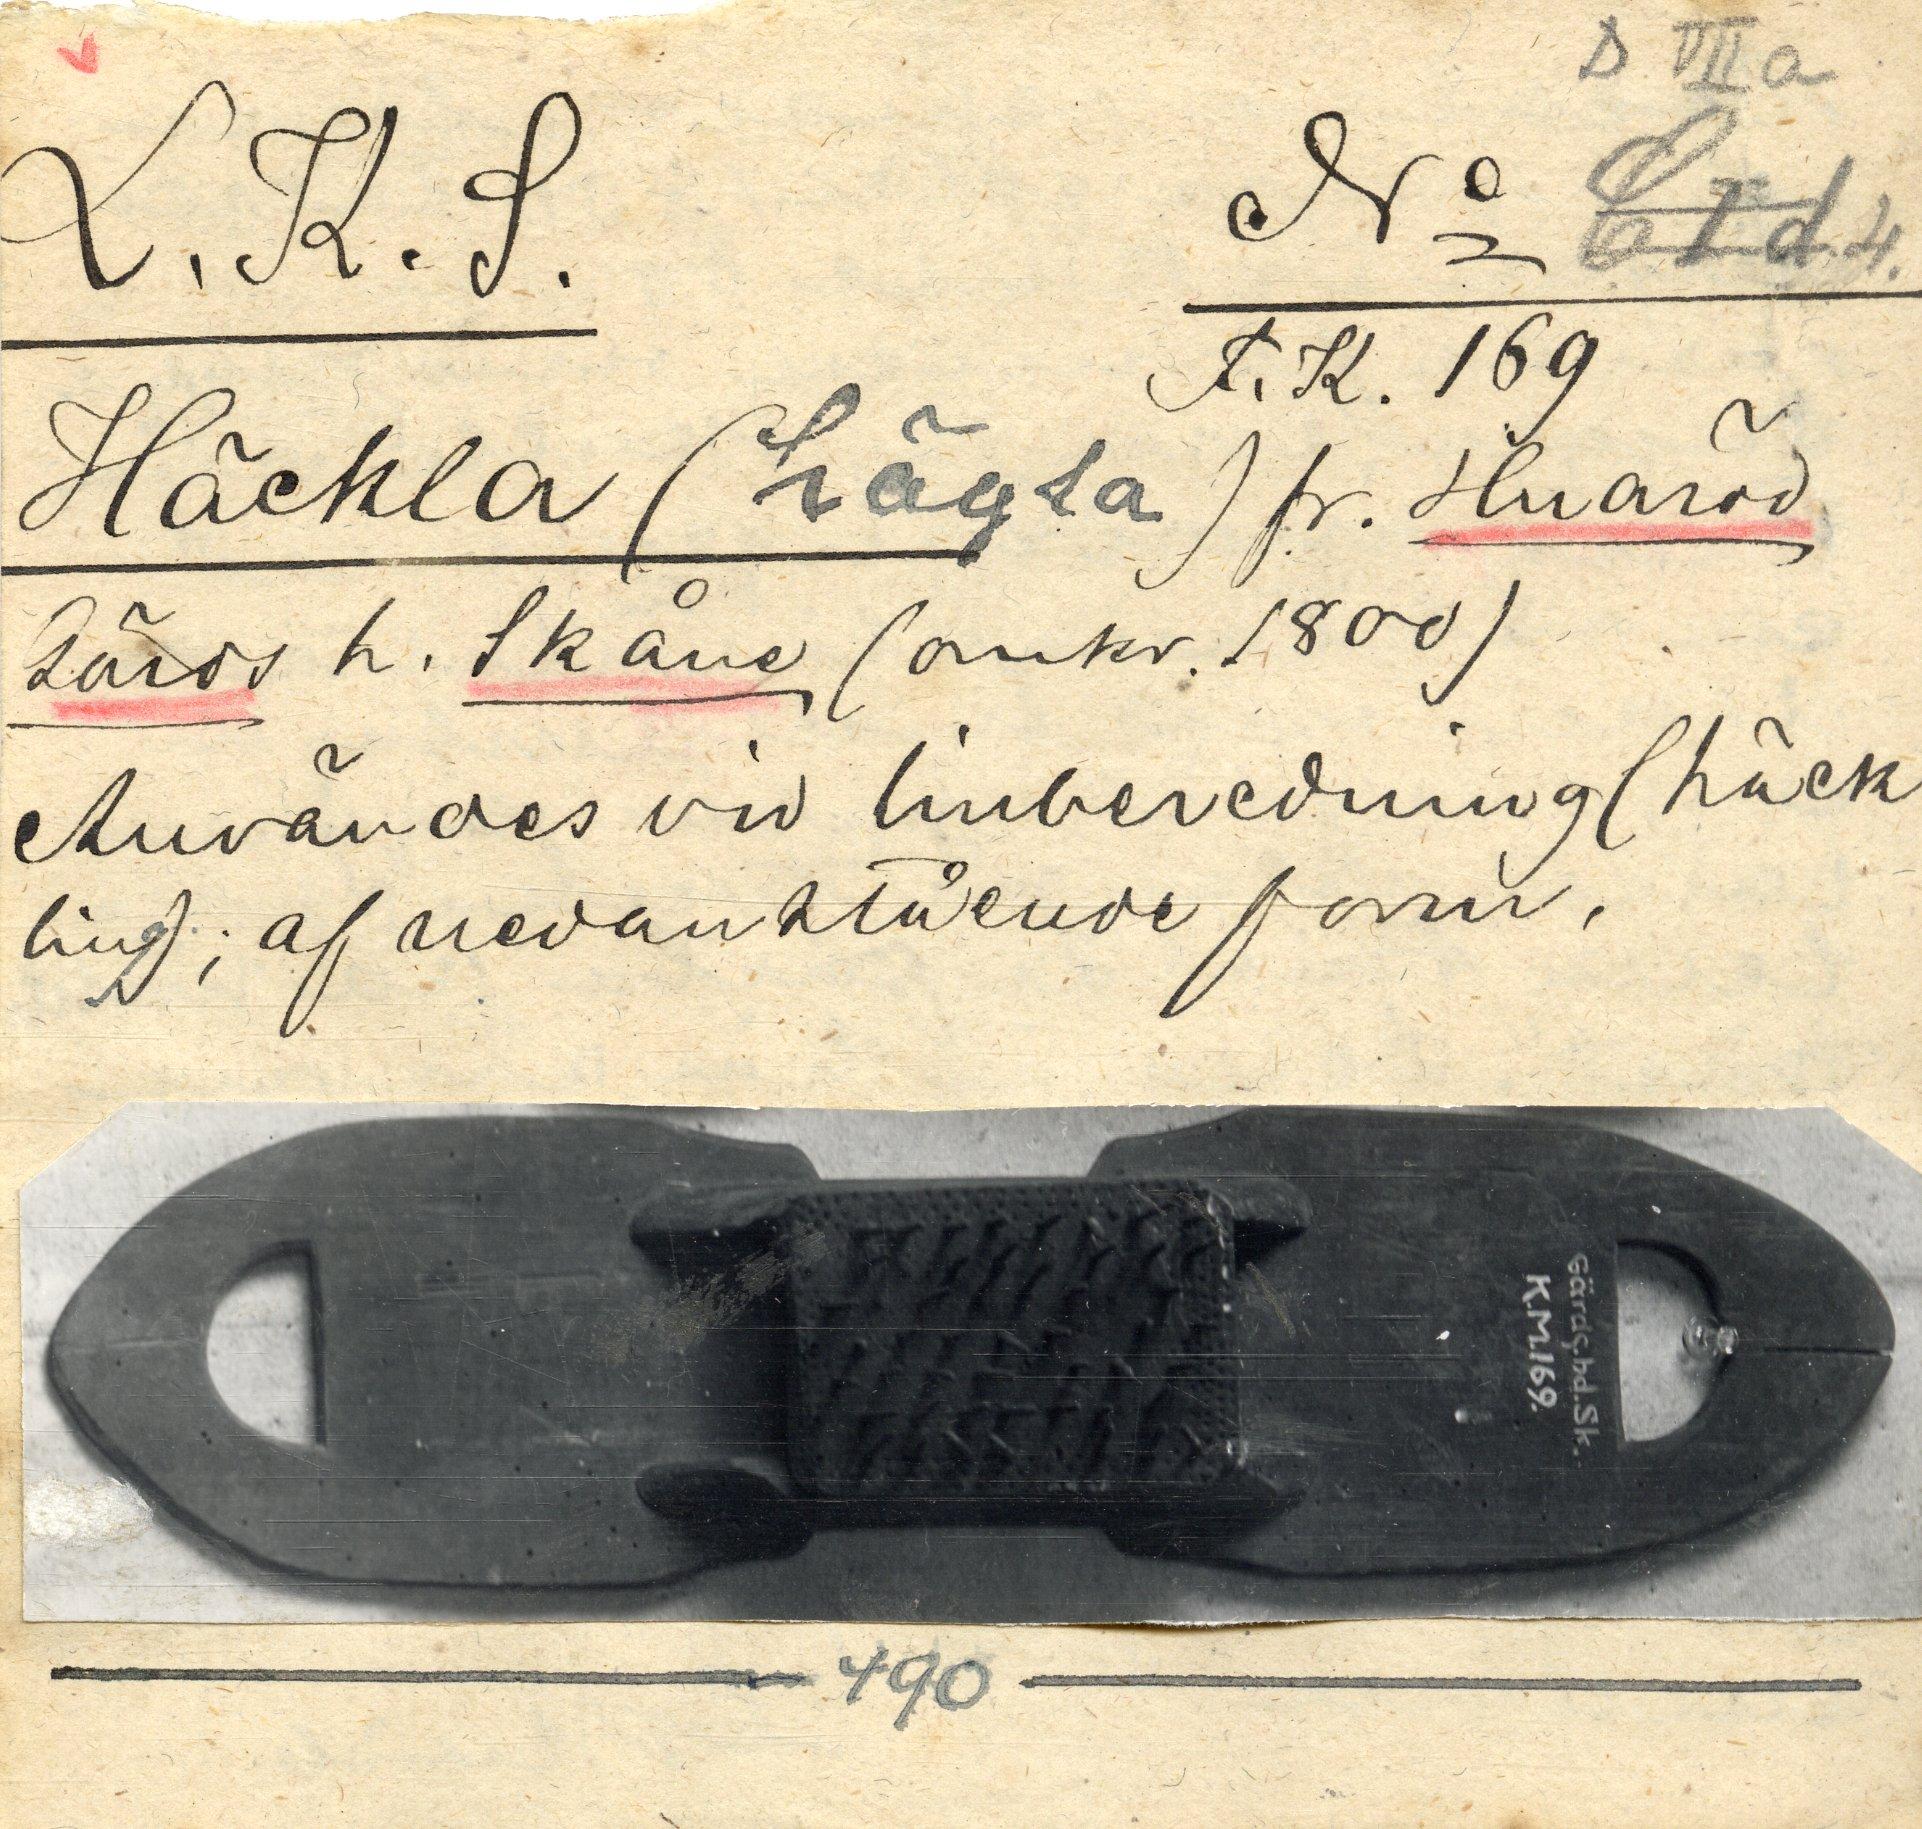 D VIIa
L. K. S.
No 4.
F. K. 169
Häckla (hägla) fr. Huaröd
Gärds h. Skåne (omkr. 1800)
Användes vid linberedning (häck
ling); af nedanstående form.
Gärds, hd. Sk.
K.M.169.
490